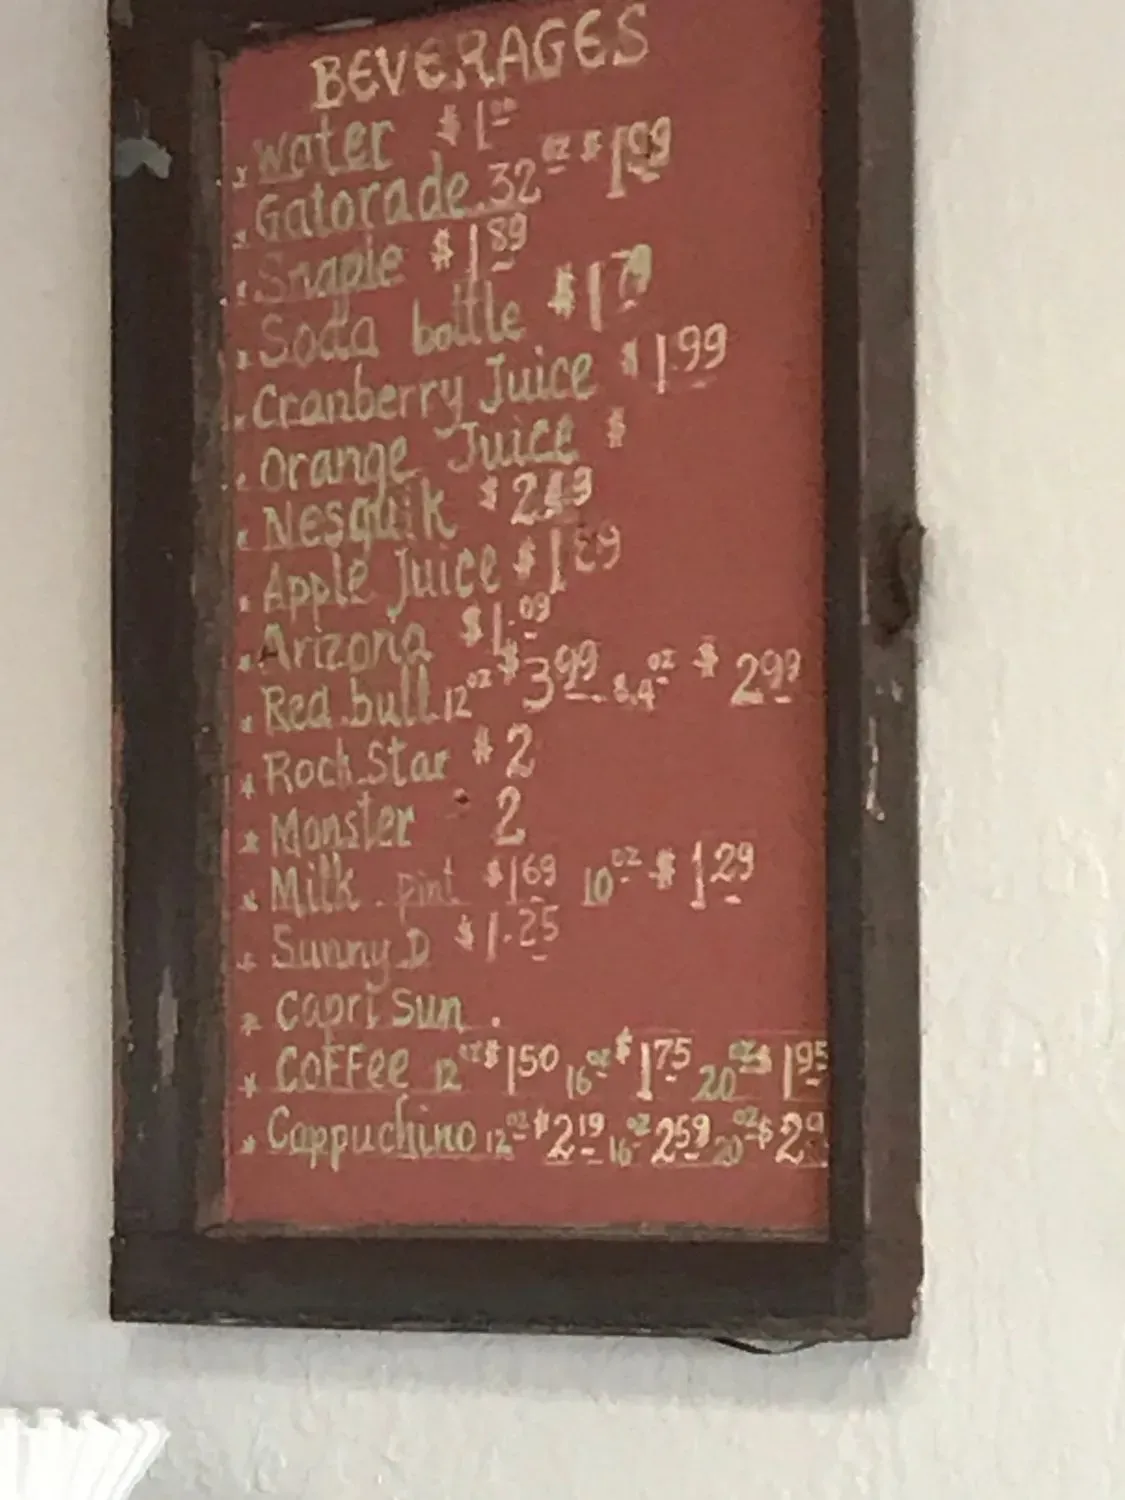 BEVERAGES
* Water $1.00
* Gatorade 32 oz $1.99
* Snaple $1.89
* Soda bottle $1.79
* Cranberry Juice $1.99
* Orange Juice $
* Nesquik $2.49
* Apple Juice $1.89
* Arizona $1.09
* Red bull 12 oz $3.99 8.4 oz $2.99
* Rock Star $2
* Monster 2
* Milk. pint $1.69 10 oz $1.29
* Sunny D $1.25
* Capri Sun.
* COFFee 12 oz $1.50 16 oz $1.75 20 oz $1.95
* Cappuchino 12 oz $2.19 16 oz 2.59 20 oz $2.9